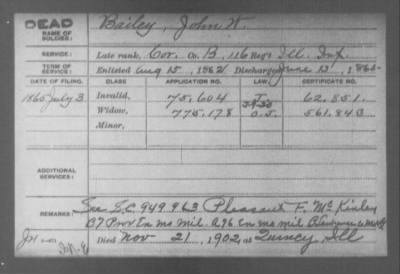 DEAD
NAME OF SOLDIER: Bailey, John W.
SERVICE: Late rank, Cor. Co. B, 116 Reg't Ill. Inf.
TERM OF SERVICE: Enlisted Aug 15, 1862 Discharged June 13, 1865
DATE OF FILING. CLASS. APPLICATION NO. LAW. CERTIFICATE NO.
1865 July 3 Invalid, 75.604 62.851.
Widow, 775.178 561.840
Minor,
ADDITIONAL SERVICES:
REMARKS: See S.C. 949.963 Pleasant F. McKinley
B 7 Prov En Mo Mil. A 76 En Mo Mil
Died Nov 21, 1902, at Quincy, Ill